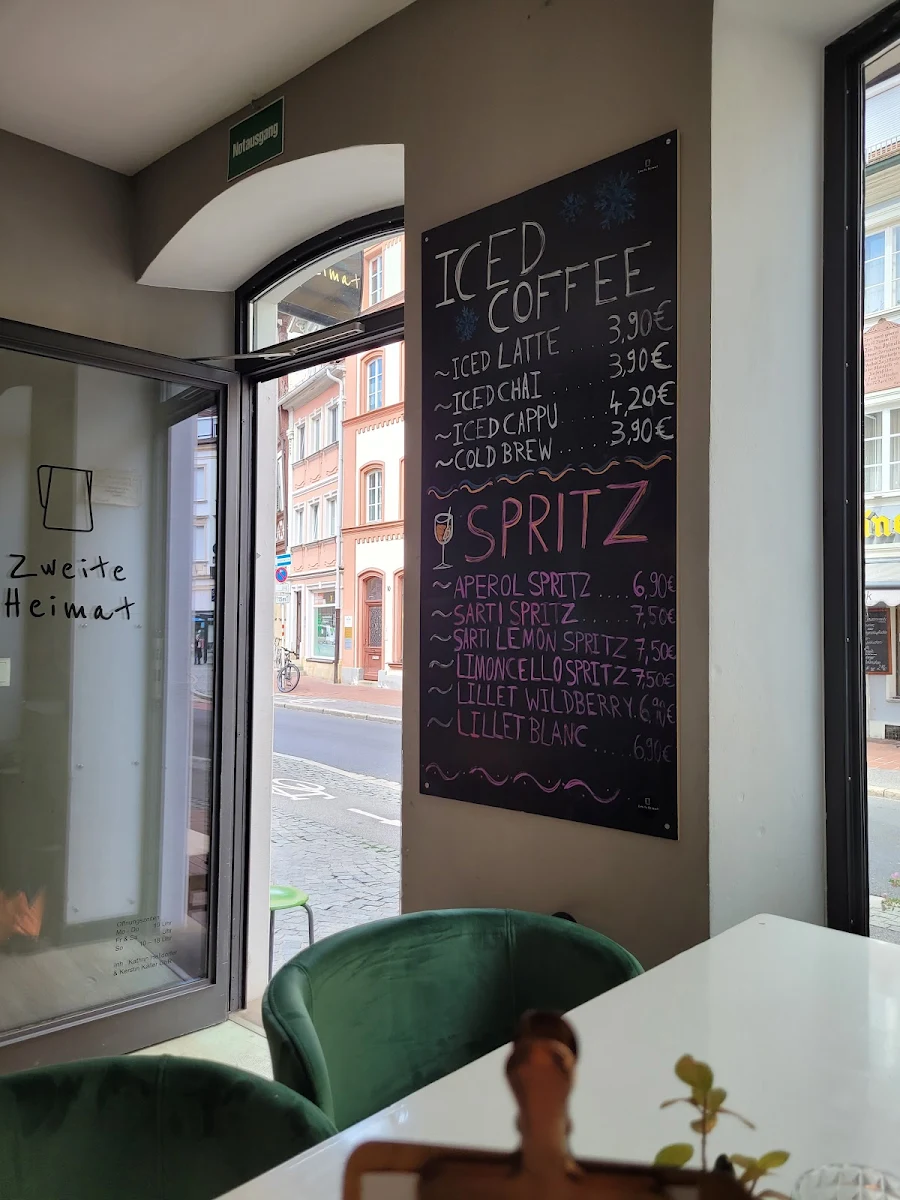 Notausgang
imat
ICED
COFFEE
~ICED LATTE ..... 3,90€
~ICED CHAI ...... 3,90€
~ICED CAPPU ..... 4,20€
~COLD BREW ...... 3,90€
SPRITZ
~ APEROL SPRITZ ..... 6,90€
~ SARTI SPRITZ ...... 7,50€
~ SARTI LEMON SPRITZ 7,50€
~ LIMONCELLO SPRITZ 7,50€
~ LILLET WILDBERRY. 6,90€
~ LILLET BLANC ..... 6,90€
Zweite
Heimat
Öffnungszeiten
Mo - Do
Fr & Sa
So 10 - 18 Uhr